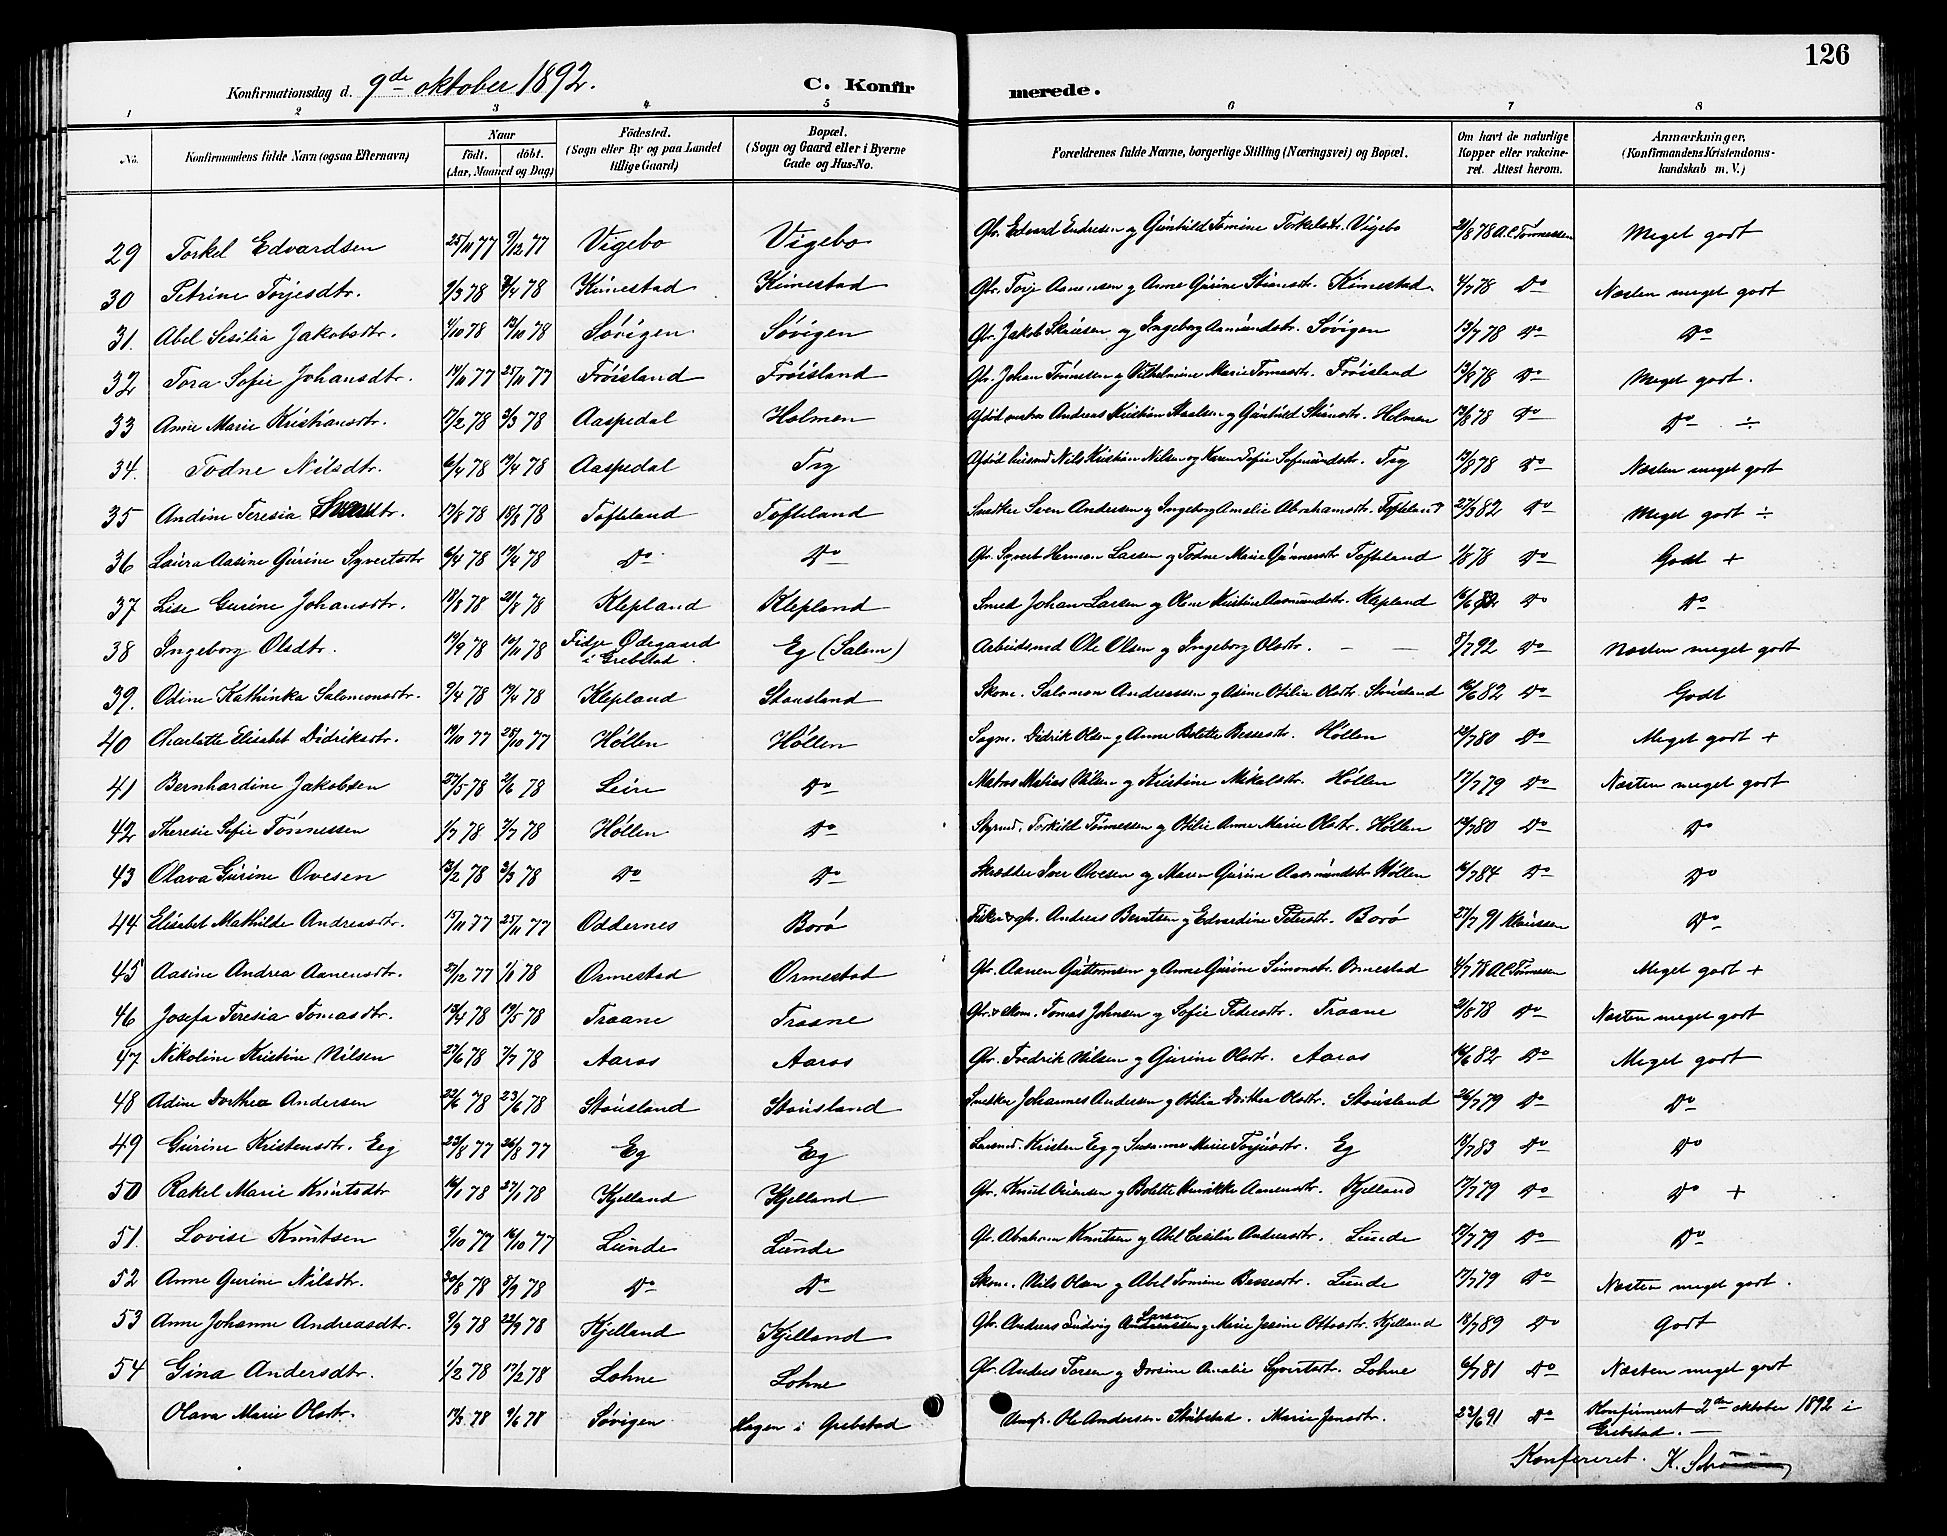 126
Konfirmationsdag d. 9de oktober 1892. C. Konfir merede.
1 2 3 4 5 6 7 8
No. Konfirmandens fulde Navn (ogsaa Efternavn) Naar födt. döbt. (Aar, Maaned og Dag) Födested. (Sogn eller By og paa Landet tillige Gaard) Bopæl. (Sogn og Gaard eller i Byerne Gade og Hus-No. Forældrenes fulde Navne, borgerlige Stilling (Næringsvei) og Bopæl. Om havt de naturlige Kopper eller vakcineret. Attest herom. Anmærkninger, (Konfirmandens Kristendomskundskab m. V.)
29 Torkel Edvardsen 25/11 77 9/12 77 Vigebo Vigebo Gbr. Edvard Endresen og Gunhild Tomine Torkelsdtr. Vigebo 21/8 78 A.C. Tönnessen Meget godt
30 Petrine Torjesdtr. 9/3 78 Kimestad Kimestad Gbr. Torje Aanensen og Anne Gurine Stiansdtr. Kimestad. 4/7 78 Do Næsten meget godt
31. Abel Sesilia Jakobsdtr. 4/10 78 13/10 78 Søvigen Søvigen Gbr. Jakob og Ingeborg Asmundsdtr. Søvigen 13/7 78 Do Do
32 Tora Sofie Johansdtr. 14/11 77 25/11 77 Frøisland Frøisland Gbr. Johan Tønnesen og Vilhelmine Marie Tomasdtr. Frøisland 13/8 78 Do Meget godt.
33 Anne Marie Kristiansdtr. 17/2 78 3/3 78 Aaspedal Holmen Afdöd matros Andreas Kristian og Gunhild Holmen 13/8 78 Do Do ÷
34. Todne Nilsdtr. 6/4 78 19/4 78 Aaspedal Try Afdöd Nils Kristian Nilsen og Karen Sofie Try 13/8 78 Do Næsten meget godt
35 Andine Teresia 17/8 78 18/8 78 Tofteland Tofteland Snedker Sven Andersen og Ingeborg Amalie Abrahamsdtr. Tofteland 27/3 82 Do Meget godt ÷
36 Laura Aasine Gurine Syvertsdtr 6/4 78 19/4 78 Do Do Gbr. Syvert Herman Larsen og Todne Marie Gunnersdtr Tofteland 1/8 78 Do Godt +
37 Lise Gurine Johansdtr. 10/8 78 21/8 78 Klepland Klepland Smed Johan Larsen og Olene Kristine Aasmundsdtr. Klepland 16/6 82 Do Do
38 Ingeborg Olsdtr. 19/9 78 10/11 78 Fidje Ødegaard i Grebstad. Eg (Salem) Arbeidsmd Ole Olsen og Ingeborg Olsdtr. — — 8/7 92 Do Næsten meget godt
39. Odine Kathinka Salomonsdtr. 9/4 78 19/4 78 Klepland Stausland Skom. Salomon Andreassen og Adine Otilia Olsdtr. Stausland 16/6 82 Do Godt
40 Charlotte Elisabet Didriksdtr. 19/10 77 28/10 77 Høllen Høllen Didrik Olsen og Anne Bolette Bessesdtr. Høllen 12/7 80 Do Meget godt +
41 Bernhardine Jakobsen 27/5 78 2/6 78 Leire Do Matros Matias Nilsen og Kristine Mikalsdtr. Høllen 17/7 79 Do Næsten meget godt
42 Theresie Sofie Tønnessen 1/7 78 7/7 78 Høllen Do Styrmd. Torkild Tønnessen og Otilie Anne Marie Olsdtr. Høllen 12/7 80 Do Do
43 Olava Gurine Ovesen 13/2 78 3/3 78 Do Do Skrædder Iver Ovesen og Maren Gurine Aasmundsdtr Høllen 16/7 84 Do Do
44 Elisabet Mathilde Andreasdtr. 15/11 77 25/11 77 Oddernes Borø Fisker & gbr. Andreas Berntsen og Edvardine Petersdtr. Borø 27/7 91 Klaussen Do
45 Aasine Andrea Aanensdtr. 21/12 77 1/1 78 Ormestad Ormestad Gbr. Aanen Guttormsen og Anne Gurine Simonsdtr. Ormestad 4/7 78 A.C. Tönnessen Meget godt +
46 Josefa Teresia Tomasdtr. 13/4 78 19/5 78 Traane Traane Gbr. & skom. Tomas Johnsen og Sofie Pedersdtr. Traane 21/8 78 Do Næsten meget godt
47 Nikoline Kristine Nilsen 27/6 78 7/7 78 Aaros Aaros Gbr. Fredrik Nilsen og Gurine Olsdtr. Aaros 16/6 82 Do Meget godt
48 Adine Dorthea Andersen 22/6 78 23/6 78 Stausland Stausland Snedker Johannes Andersen og Otilia Dorthea Olsdtr. Stausland 26/7 79 Do Do
49 Gurine Kristensdtr. Eeg 23/8 77 26/8 77 Eg Eg Lensmd. Kristen Eeg og Susanne Marie Torjusdtr. Eg 18/7 83 Do Do
50 Rakel Marie Knutsdtr 16/1 78 27/1 78 Kjelland Kjelland Gbr. Knud og Bolette Henrikke Aanensdtr. Kjelland 17/7 79 Do Do +
51. Lovise Knutsen 9/10 77 16/10 77 Lunde Lunde Gbr. Abraham Knutsen og Abel Cecilia Andersdtr. Lunde 17/7 79 Do Do
52 Anne Gurine Nilsdtr. 30/8 78 8/9 78 Do Do Skom. Nils Olsen og Abel Tomine Bessesdtr. Lunde 17/7 79 Do Næsten meget godt.
53 Anne Johanne Andreasdtr. 9/9 78 22/9 78 Kjelland Kjelland Gbr. Andreas Ludvig Larsen Andreassen og Marie Josine Ottosdtr. Kjelland 18/7 89 Do Godt
54 Gina Andersdtr. 1/2 78 17/2 78 Lohne Lohne Gbr. Anders Tarsen og Dorsine Amalie Syvertsdtr. Lohne 6/7 81 Do Næsten meget godt
Olava Marie Olsdtr. 17/5 78 9/6 78 Søvigen Hagen i Grebstad Ungk. Ole Andersen Stubstad. Marie Jensdtr. 22/6 91 Do Konfirmeret 2den oktober 1892 i Grebstad. —
Konfereret. K.